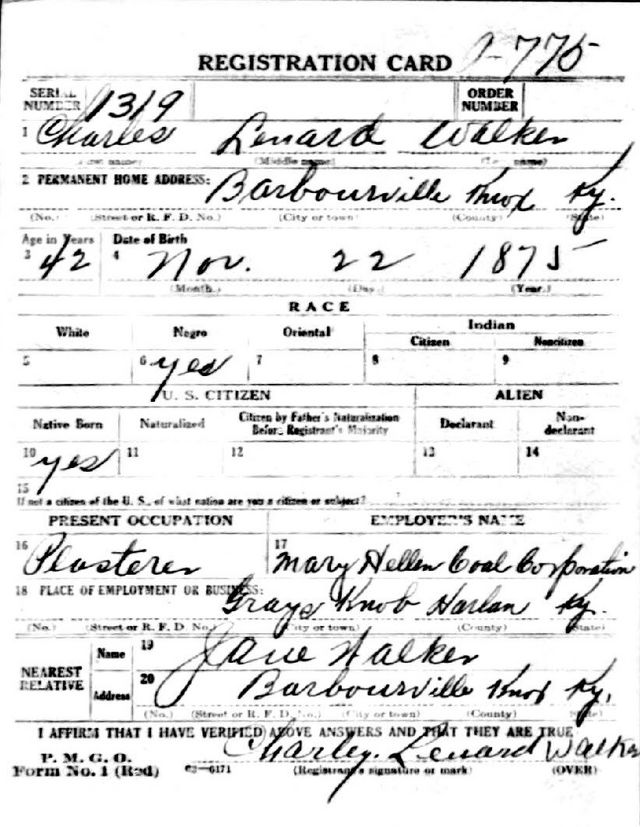 REGISTRATION CARD 9-775
SERIAL NUMBER 1319 ORDER NUMBER
1 Charles Lenard Walker
(First name) (Middle name) (Last name)
2 PERMANENT HOME ADDRESS: Barbourville Knox Ky.
(No.) (Street or R. F. D. No.) (City or town) (County) (State)
Age in Years Date of Birth
3 42 4 Nov. 22 1875
(Month.) (Day.) (Year.)
RACE
White Negro Oriental Indian
Citizen Noncitizen
5 6 yes 7 8 9
U. S. CITIZEN ALIEN
Native Born Naturalized Citizen by Father's Naturalization Before Registrant's Majority Declarant Non-declarant
10 yes 11 12 13 14
15
If not a citizen of the U. S., of what nation are you a citizen or subject?
PRESENT OCCUPATION EMPLOYER'S NAME
16 Plasterer 17 Mary Hellen Coal Corporation
18 PLACE OF EMPLOYMENT OR BUSINESS:
Grays Knob Harlan Ky.
(No.) (Street or R. F. D. No.) (City or town) (County) (State)
NEAREST RELATIVE Name 19 Jane Walker
Address 20 Barbourville Knox Ky.
(No.) (Street or R. F. D. No.) (City or town) (County) (State)
I AFFIRM THAT I HAVE VERIFIED ABOVE ANSWERS AND THAT THEY ARE TRUE
P. M. G. O.
Form No. 1 (Red) 03—6171 Charley Lenard Walker
(Registrant's signature or mark) (OVER)